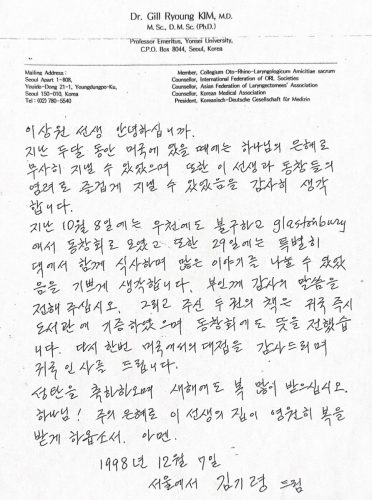 Dr. Gill Ryoung KIM, M.D.
M. Sc., D. M. Sc. (Ph.D.)
Professor Emeritus, Yonsei University,
C.P.O. Box 8044, Seoul, Korea
Mailing Address :
Seoul Apart 1-808,
Youido-Dong 21-1, Youngdungpo-Ku,
Seoul 150-010, Korea
Tel : (02) 780-5540
Member, Collegium Oto-Rhino-Laryngologicum Amicitiae sacrum
Counsellor, International Federation of ORL Societies
Counsellor, Asian Federation of Laryngectomees' Association
Counsellor, Korean Medical Association
President, Koreanisch-Deutsche Gesellschaft für Medizin
이상원 선생 안녕하십니까.
지난 두달 동안 미국에 있을 때에는 하나님의 은혜로
무사히 지낼 수 있었으며 또한 이 선생과 동창들의
염려로 즐겁게 지낼 수 있었음을 감사히 생각
합니다.
지난 10월 8일에는 우천에도 불구하고 glastonbury
에서 동창회로 모였고 또한 29일에는 특별히
댁에서 함께 식사하며 많은 이야기를 나눌 수 있었
음을 기쁘게 생각합니다. 부인께 감사의 말씀을
전해 주십시오. 그리고 주신 두권의 책은 귀국 즉시
도서관에 기증하였으며 동창회에도 뜻을 전했습
니다. 다시 한번 미국에서의 대접을 감사드리며
귀국인사를 드립니다.
성탄을 축하하오며 새해에도 복 많이 받으십시오.
하나님! 주의 은혜로 이 선생의 집이 영원히 복을
받게 하옵소서. 아멘.
1998년 12월 7일
서울에서 김기령 드림